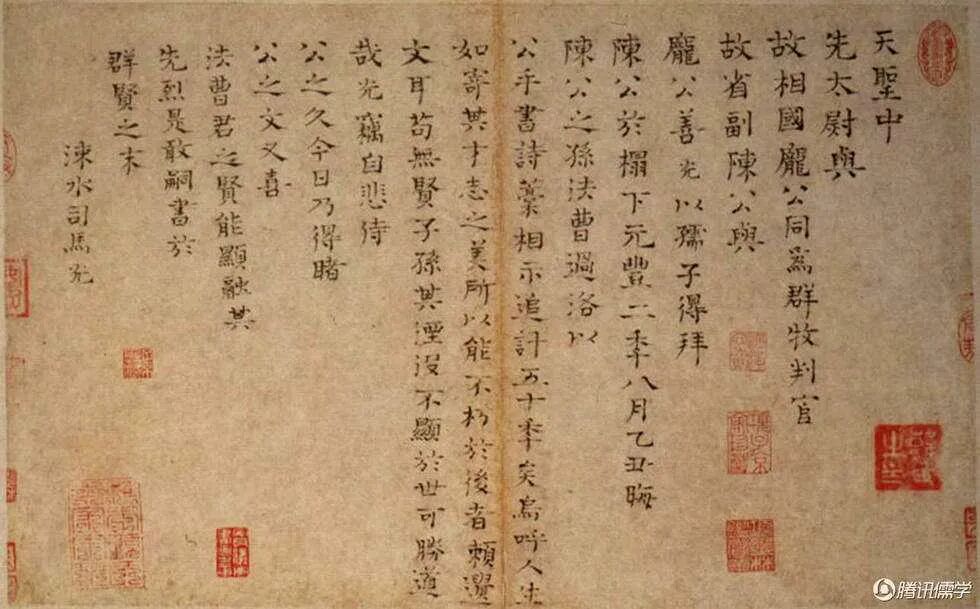 天聖中
先太尉與
故相國龐公同為群牧判官
故省副陳公與
龐公善光以孺子得拜
陳公於榻下元豐二年八月乙丑晦
陳公之孫法曹過洛以
公手書詩藁相示追計五十年矣烏呼人生
如寄其才志之美所以能不朽於後者賴遺
文耳苟無賢子孫其湮沒不顯於世可勝道
哉光竊自悲侍
公之久今日乃得睹
公之文又喜
法曹君之賢能顯融其
先烈是敢嗣書於
群賢之末
涑水司馬光
腾讯儒学